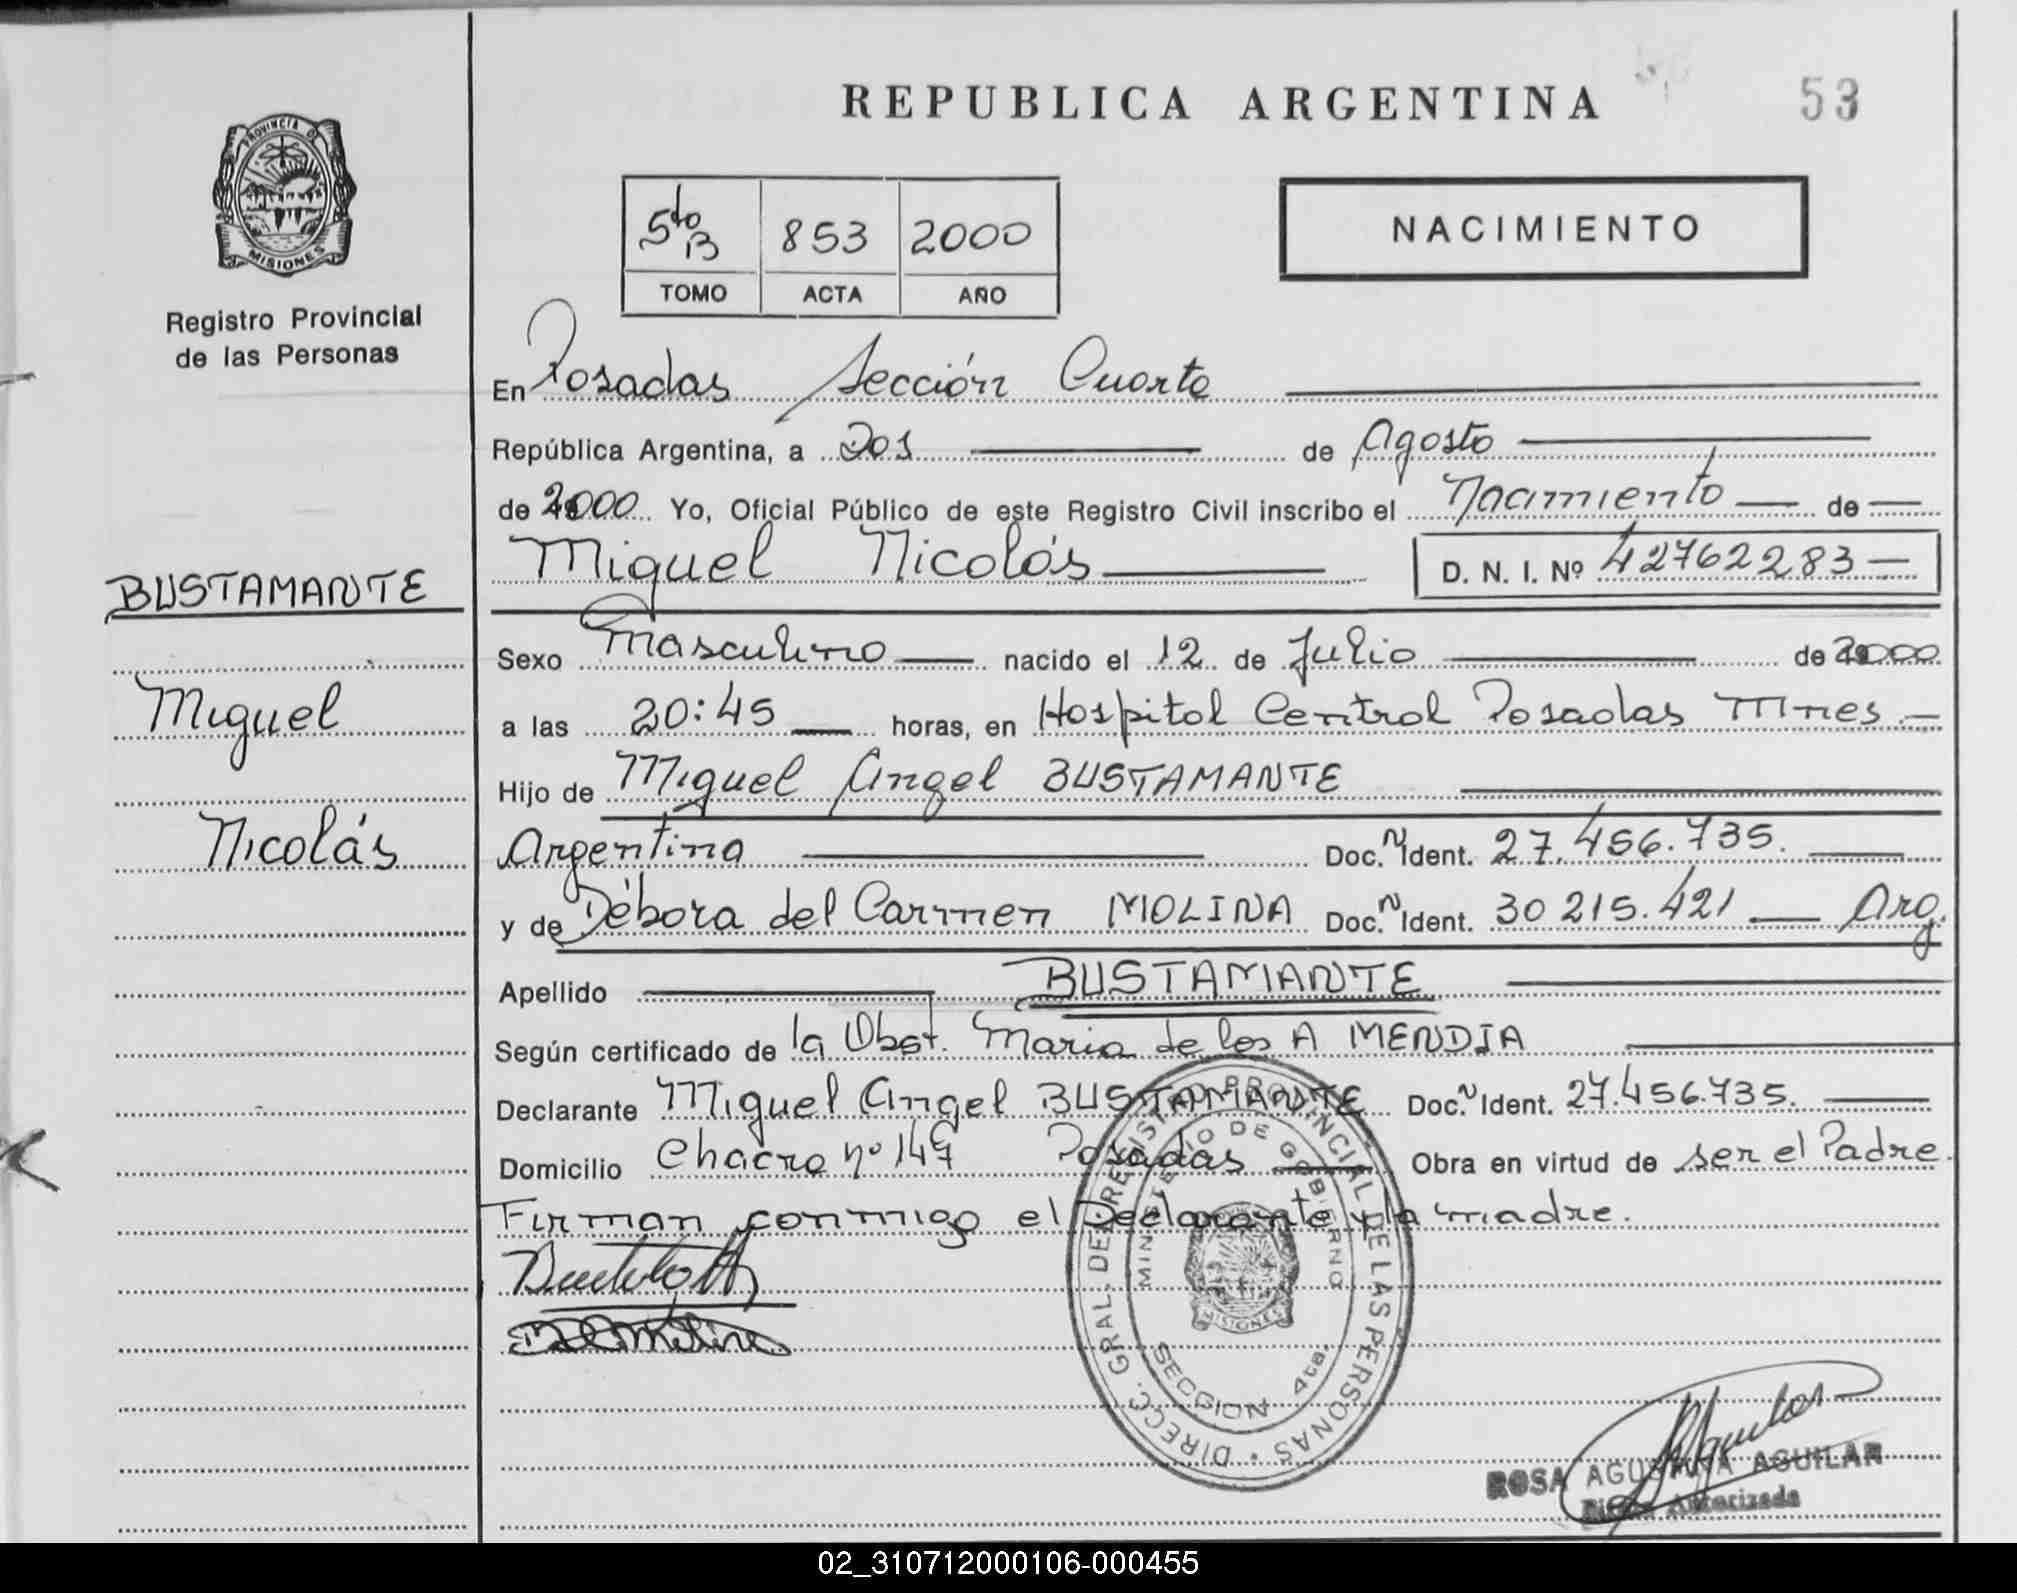 REPUBLICA ARGENTINA
53
PROVINCIA DE
MISIONES
Registro Provincial
de las Personas
5to B 853 2000
TOMO ACTA AÑO
NACIMIENTO
En Posadas Sección Cuarta
República Argentina, a Dos de Agosto
de 2000 Yo, Oficial Público de este Registro Civil inscribo el Nacimiento de
Miguel Nicolás D. N. I. Nº 42762283
BUSTAMANTE
Miguel
Nicolás
Sexo Masculino nacido el 12 de Julio de 2000
a las 20:45 horas, en Hospital Central Posadas Mnes
Hijo de Miguel Angel BUSTAMANTE
Argentina Doc. N Ident. 27.456.735.
y de Débora del Carmen MOLINA Doc. N Ident. 30 215.421 Arg.
Apellido BUSTAMANTE
Según certificado de la Obst. Maria de los A MENDIA
Declarante Miguel Angel BUSTAMANTE Doc. N Ident. 27.456.735.
Domicilio Chacra nº 147 Posadas Obra en virtud de ser el Padre.
Firman conmigo el Declarante y la madre.
DIRECC. GRAL. DE REGISTRO PROVINCIAL DE LAS PERSONAS
MINISTERIO DE GOBIERNO
MISIONES
SECCION 4ta.
ROSA AGUSTINA AGUILAR
Autorizada
02_310712000106-000455